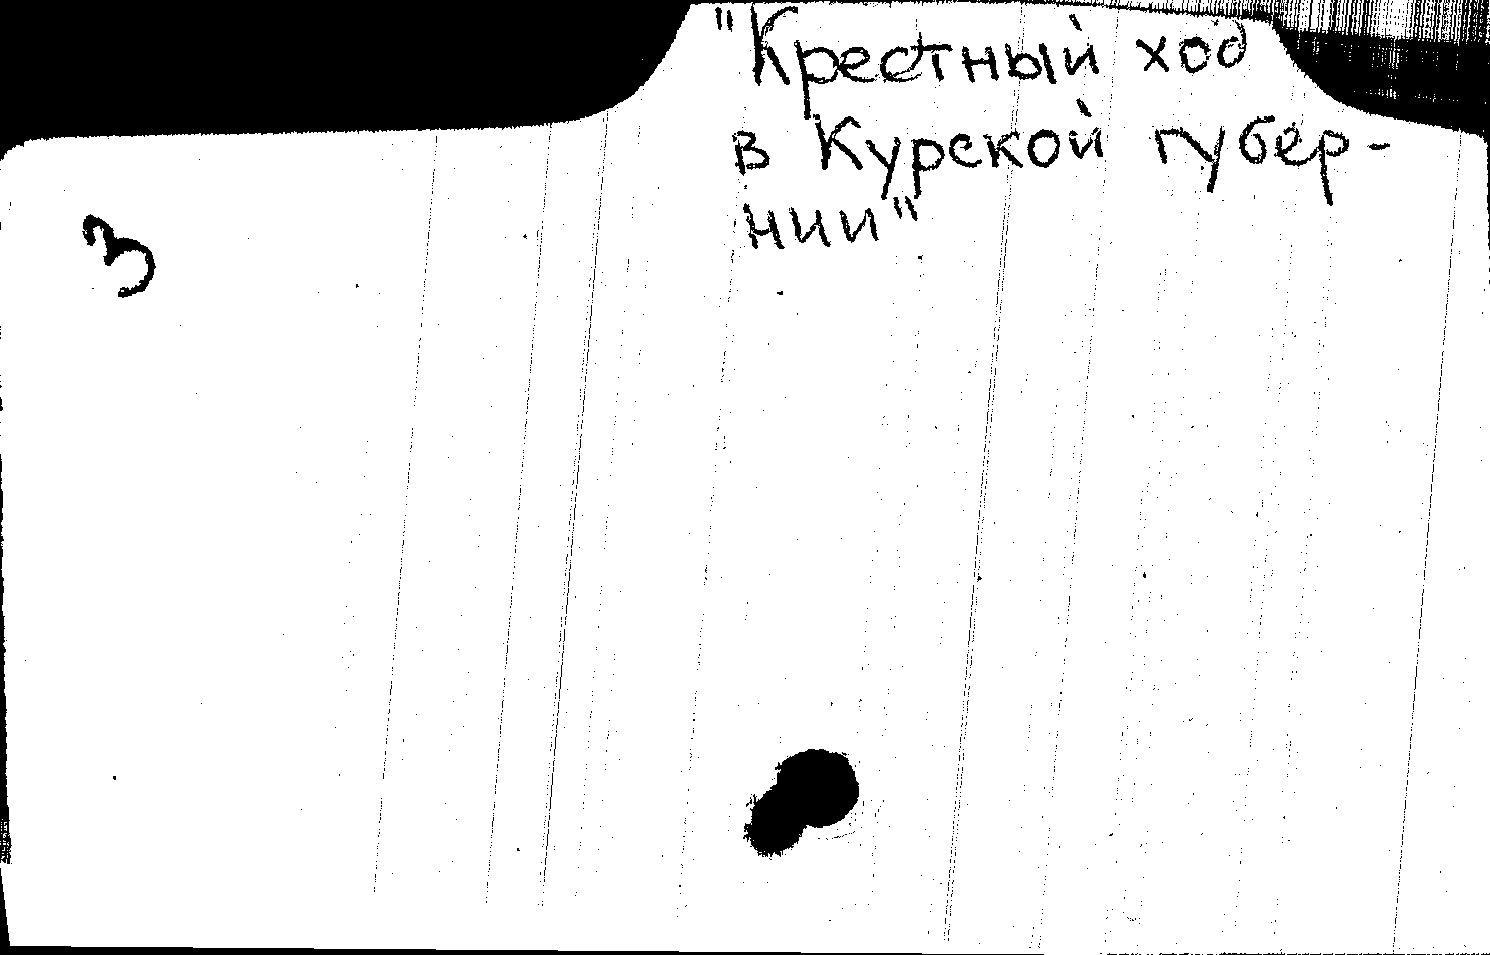 "Крестный ход
в Курской губер-
нии"
З